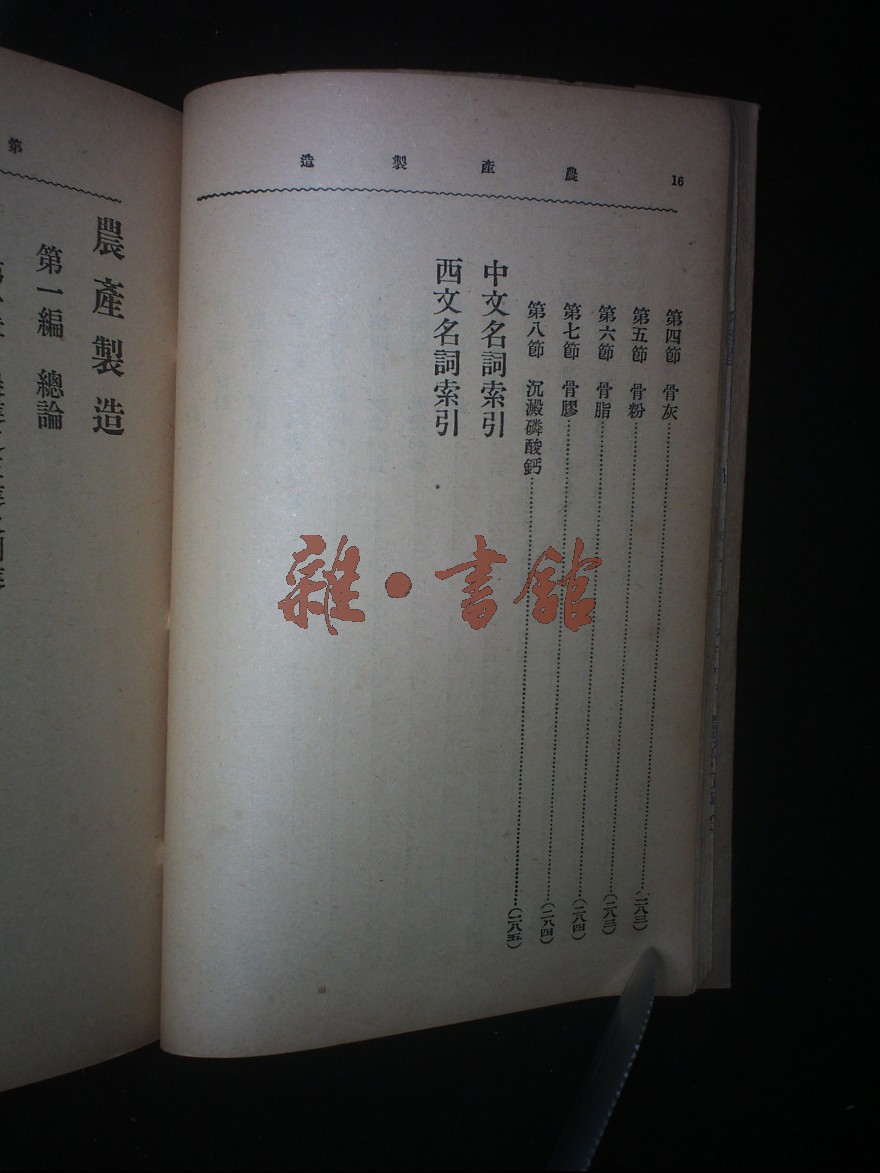 16
農產製造
第四節 骨灰……(二八三)
第五節 骨粉……(二八三)
第六節 骨脂……(二八四)
第七節 骨膠……(二八四)
第八節 沉澱磷酸鈣……(二八五)
中文名詞索引
西文名詞索引
雜·書館
第
農產製造
第一編 總論